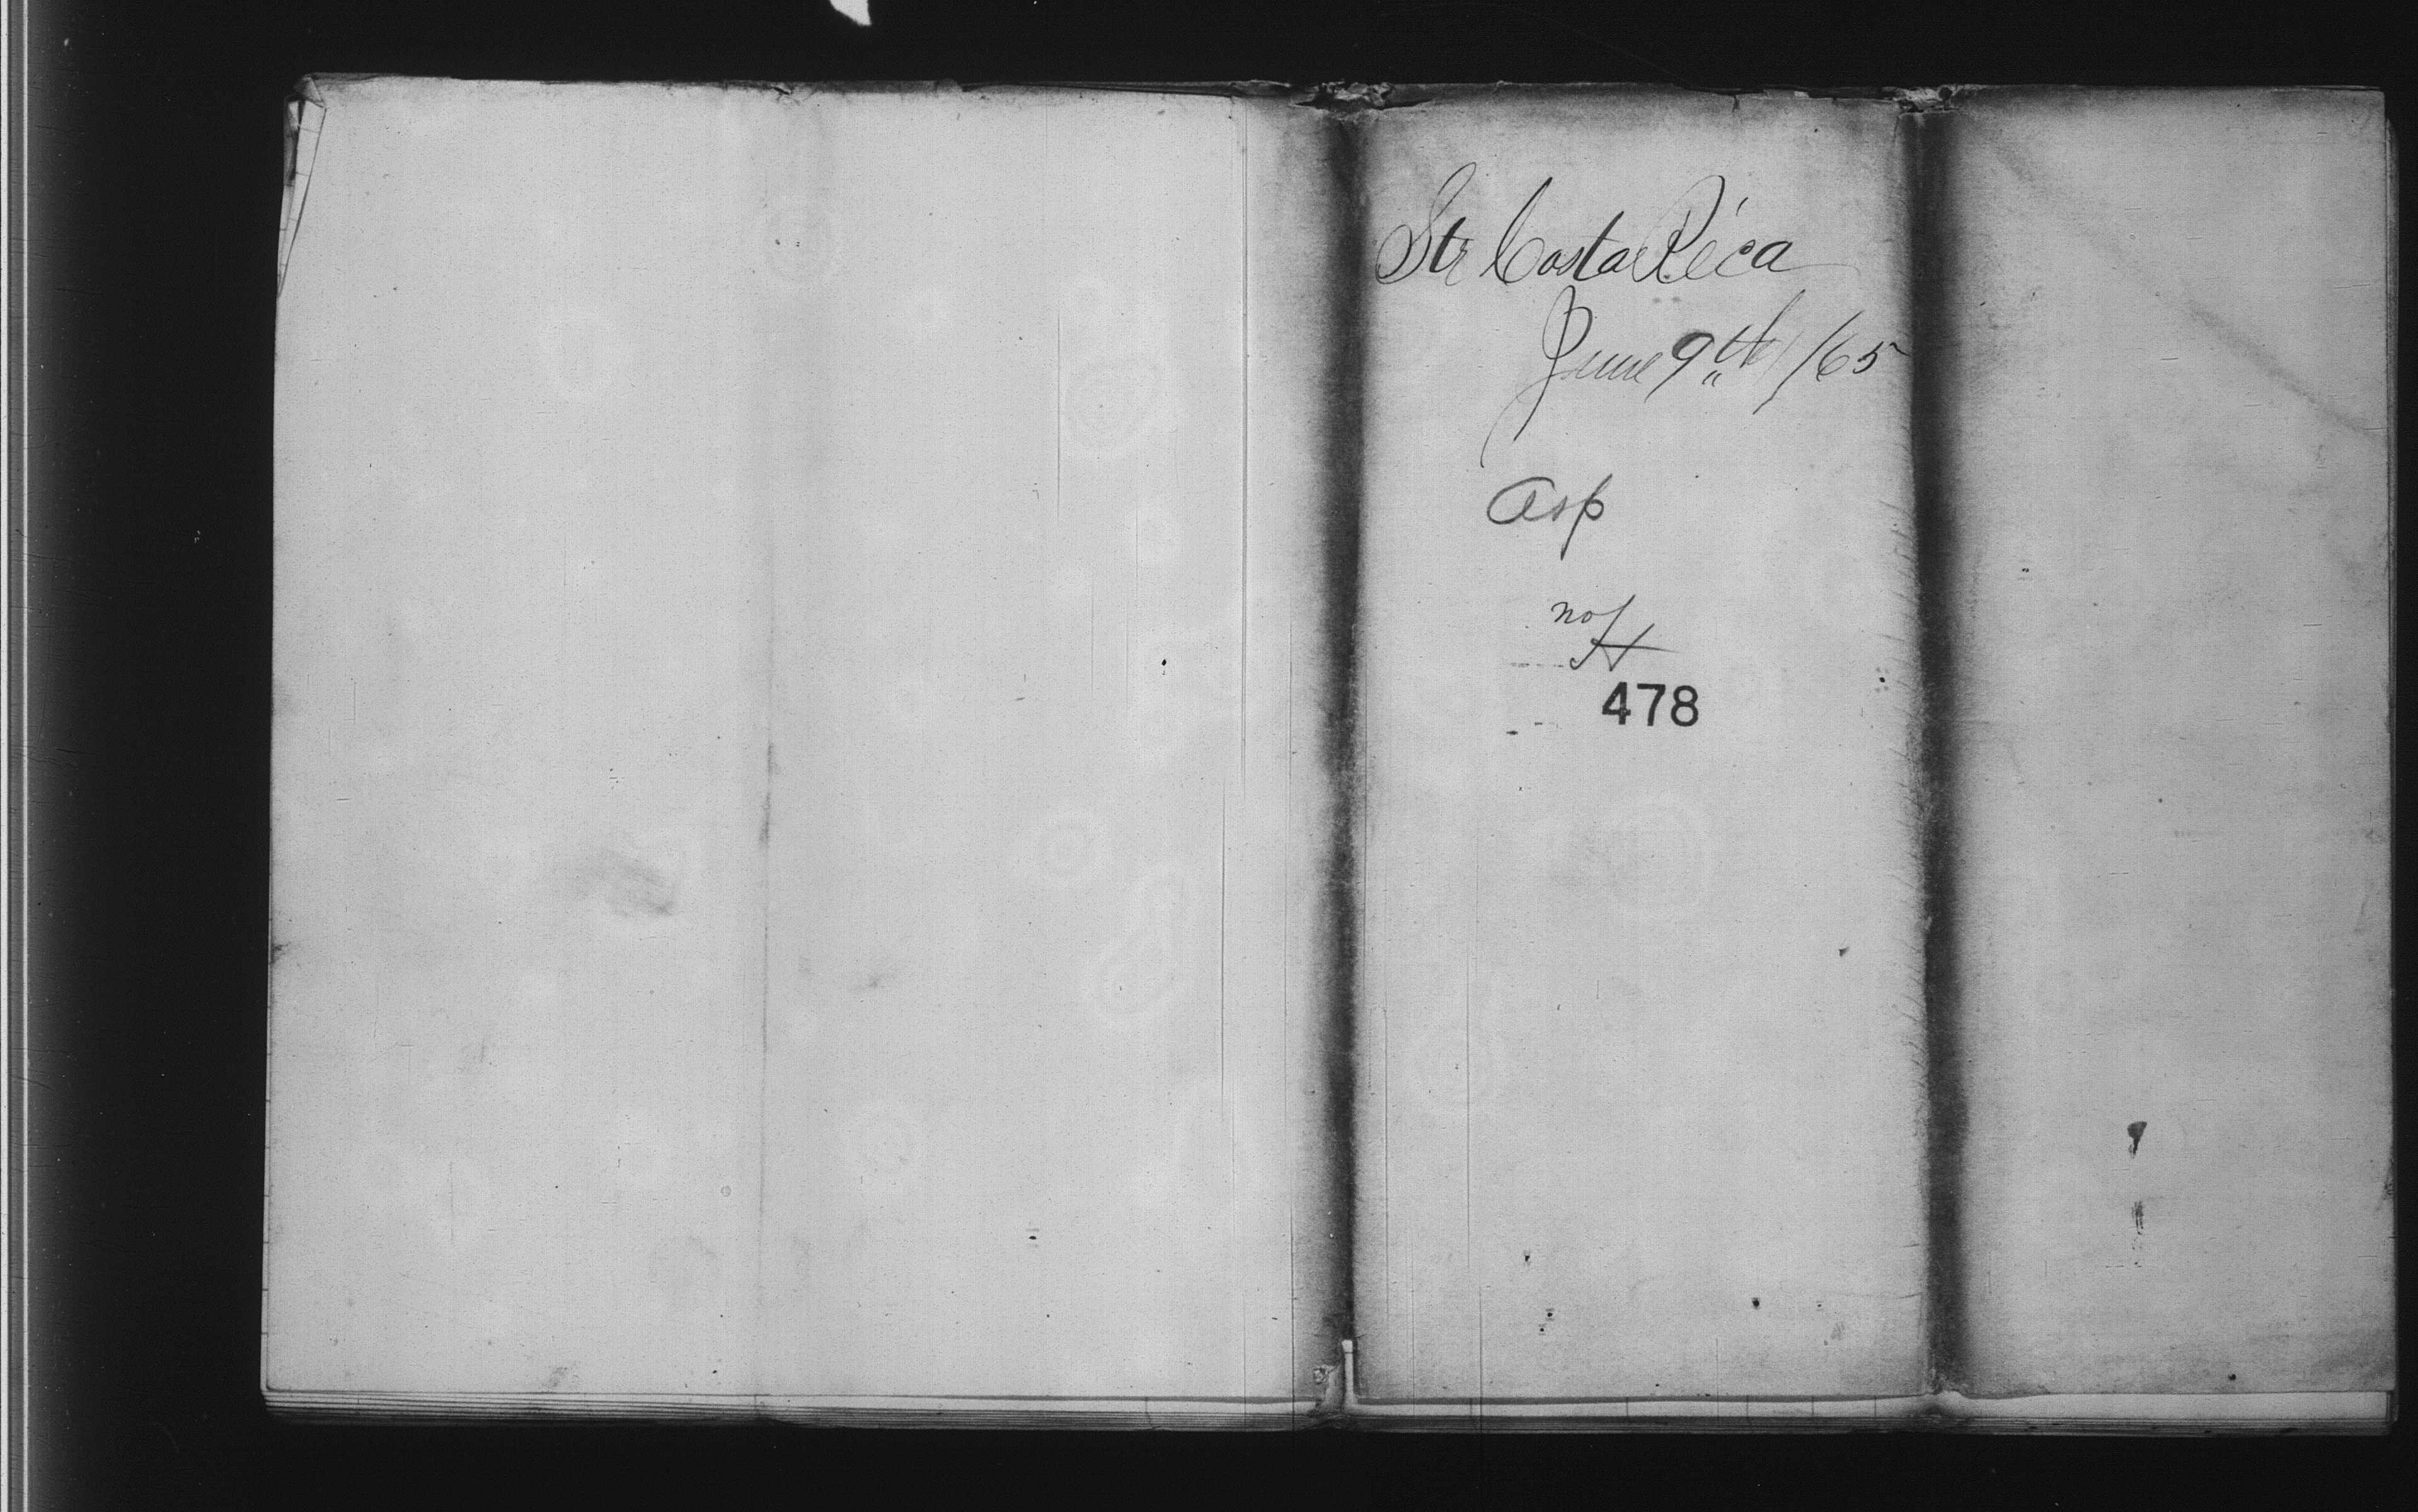 Str Costa Rica
June 9th /65
Asp
no/
478